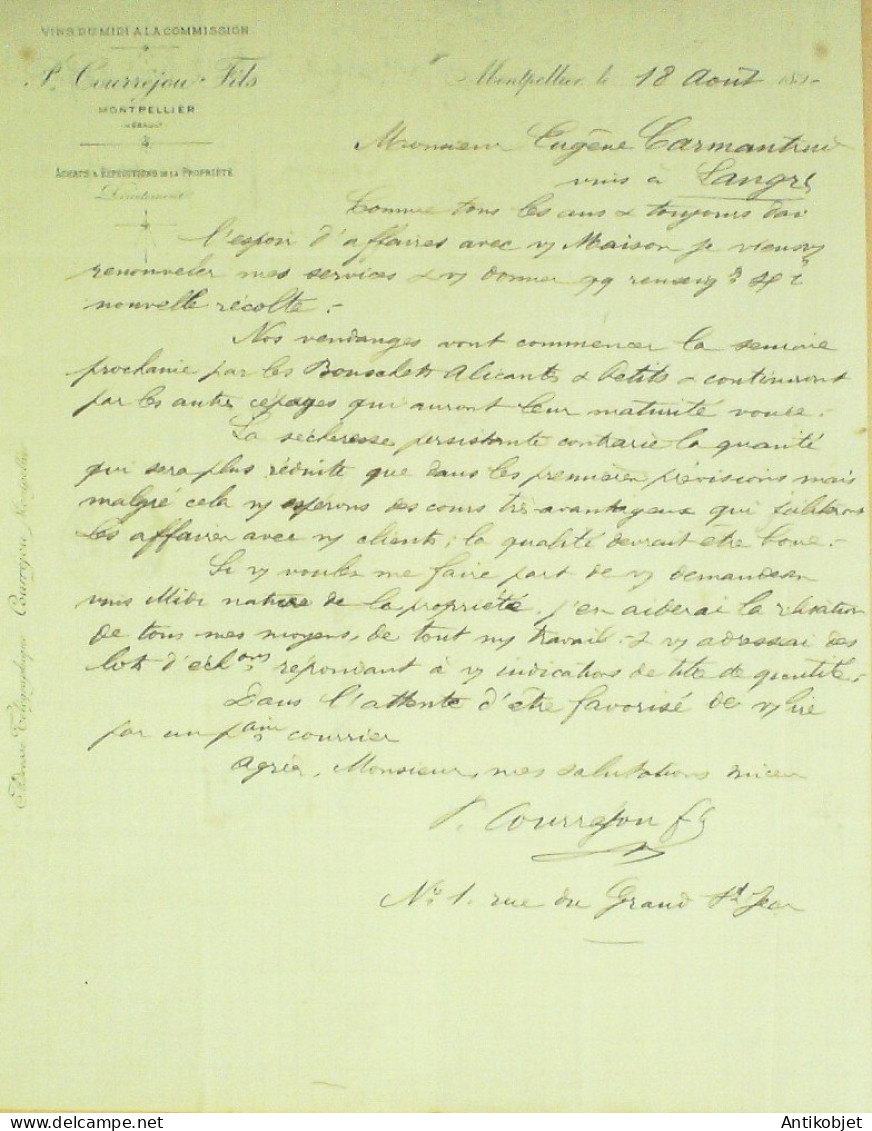 VINS DU MIDI A LA COMMISSION
P. Courréjou Fils
MONTPELLIER
HERAULT
ACHATS & EXPÉDITIONS DE LA PROPRIÉTÉ
Montpellier, le 18 Août 18
Monsieur Eugène Carmantrand
vins à Langres
Comme tous les ans & toujours dans
l'espoir d'affaires avec vy Maison je viens vy
renouveler mes services & vy donner qq renseigts s/ la
nouvelle récolte.-
Nos vendanges vont commencer la semaine
prochaine par les Bouschets Alicantes & Petits - continuront
par les autres cépages qui auront leur maturité voulue.-
La sécheresse persistante contrarie la quantité
qui sera plus réduite que dans les premières prévisions mais
malgré cela ny espérons des cours très avantageux qui faciliteront
les affaires avec ny clients; la qualité devrait être bonne.-
Si vy voulez me faire part de vy demandes en
vins Midi nature de la propriété, j'en aiderai la réalisation
de tous mes moyens, de tout my travail - & vy adresserai des
lots d'échons répondant à vy indications de titre de quantité.-
Dans l'attente d'être favorisé de vy lire
par un pain courrier
Agréez, Monsieur, mes salutations sincères
P. Courréjou fs
No. 1. rue du Grand St Jean
Adresse Télégraphique Courréjou Montpellier
Antikobjet